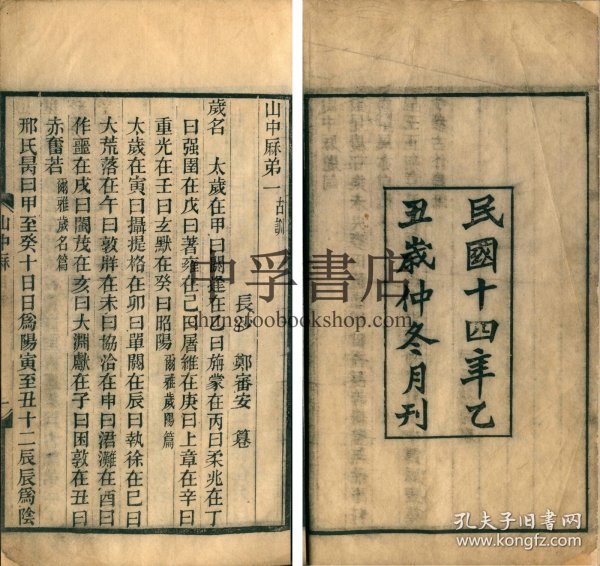 民國十四年乙
丑歲仲冬月刊
山中厤弟一
古訓
長沙 鄭審安 篹
歲名 太歲在甲曰閼逢在乙曰旃蒙在丙曰柔兆在丁
曰强圉在戊曰著雍在己曰屠維在庚曰上章在辛曰
重光在壬曰玄黓在癸曰昭陽 爾雅歲陽篇
太歲在寅曰攝提格在卯曰單閼在辰曰執徐在巳曰
大荒落在午曰敦牂在未曰協洽在申曰涒灘在酉曰
作噩在戌曰閹茂在亥曰大淵獻在子曰困敦在丑曰
赤奮若 爾雅歲名篇
邢氏昺曰甲至癸十日日爲陽寅至丑十二辰辰爲陰
山中厤
一
中孚書店
zhongfoobookshop.com
孔夫子旧書网
www.kongfz.com